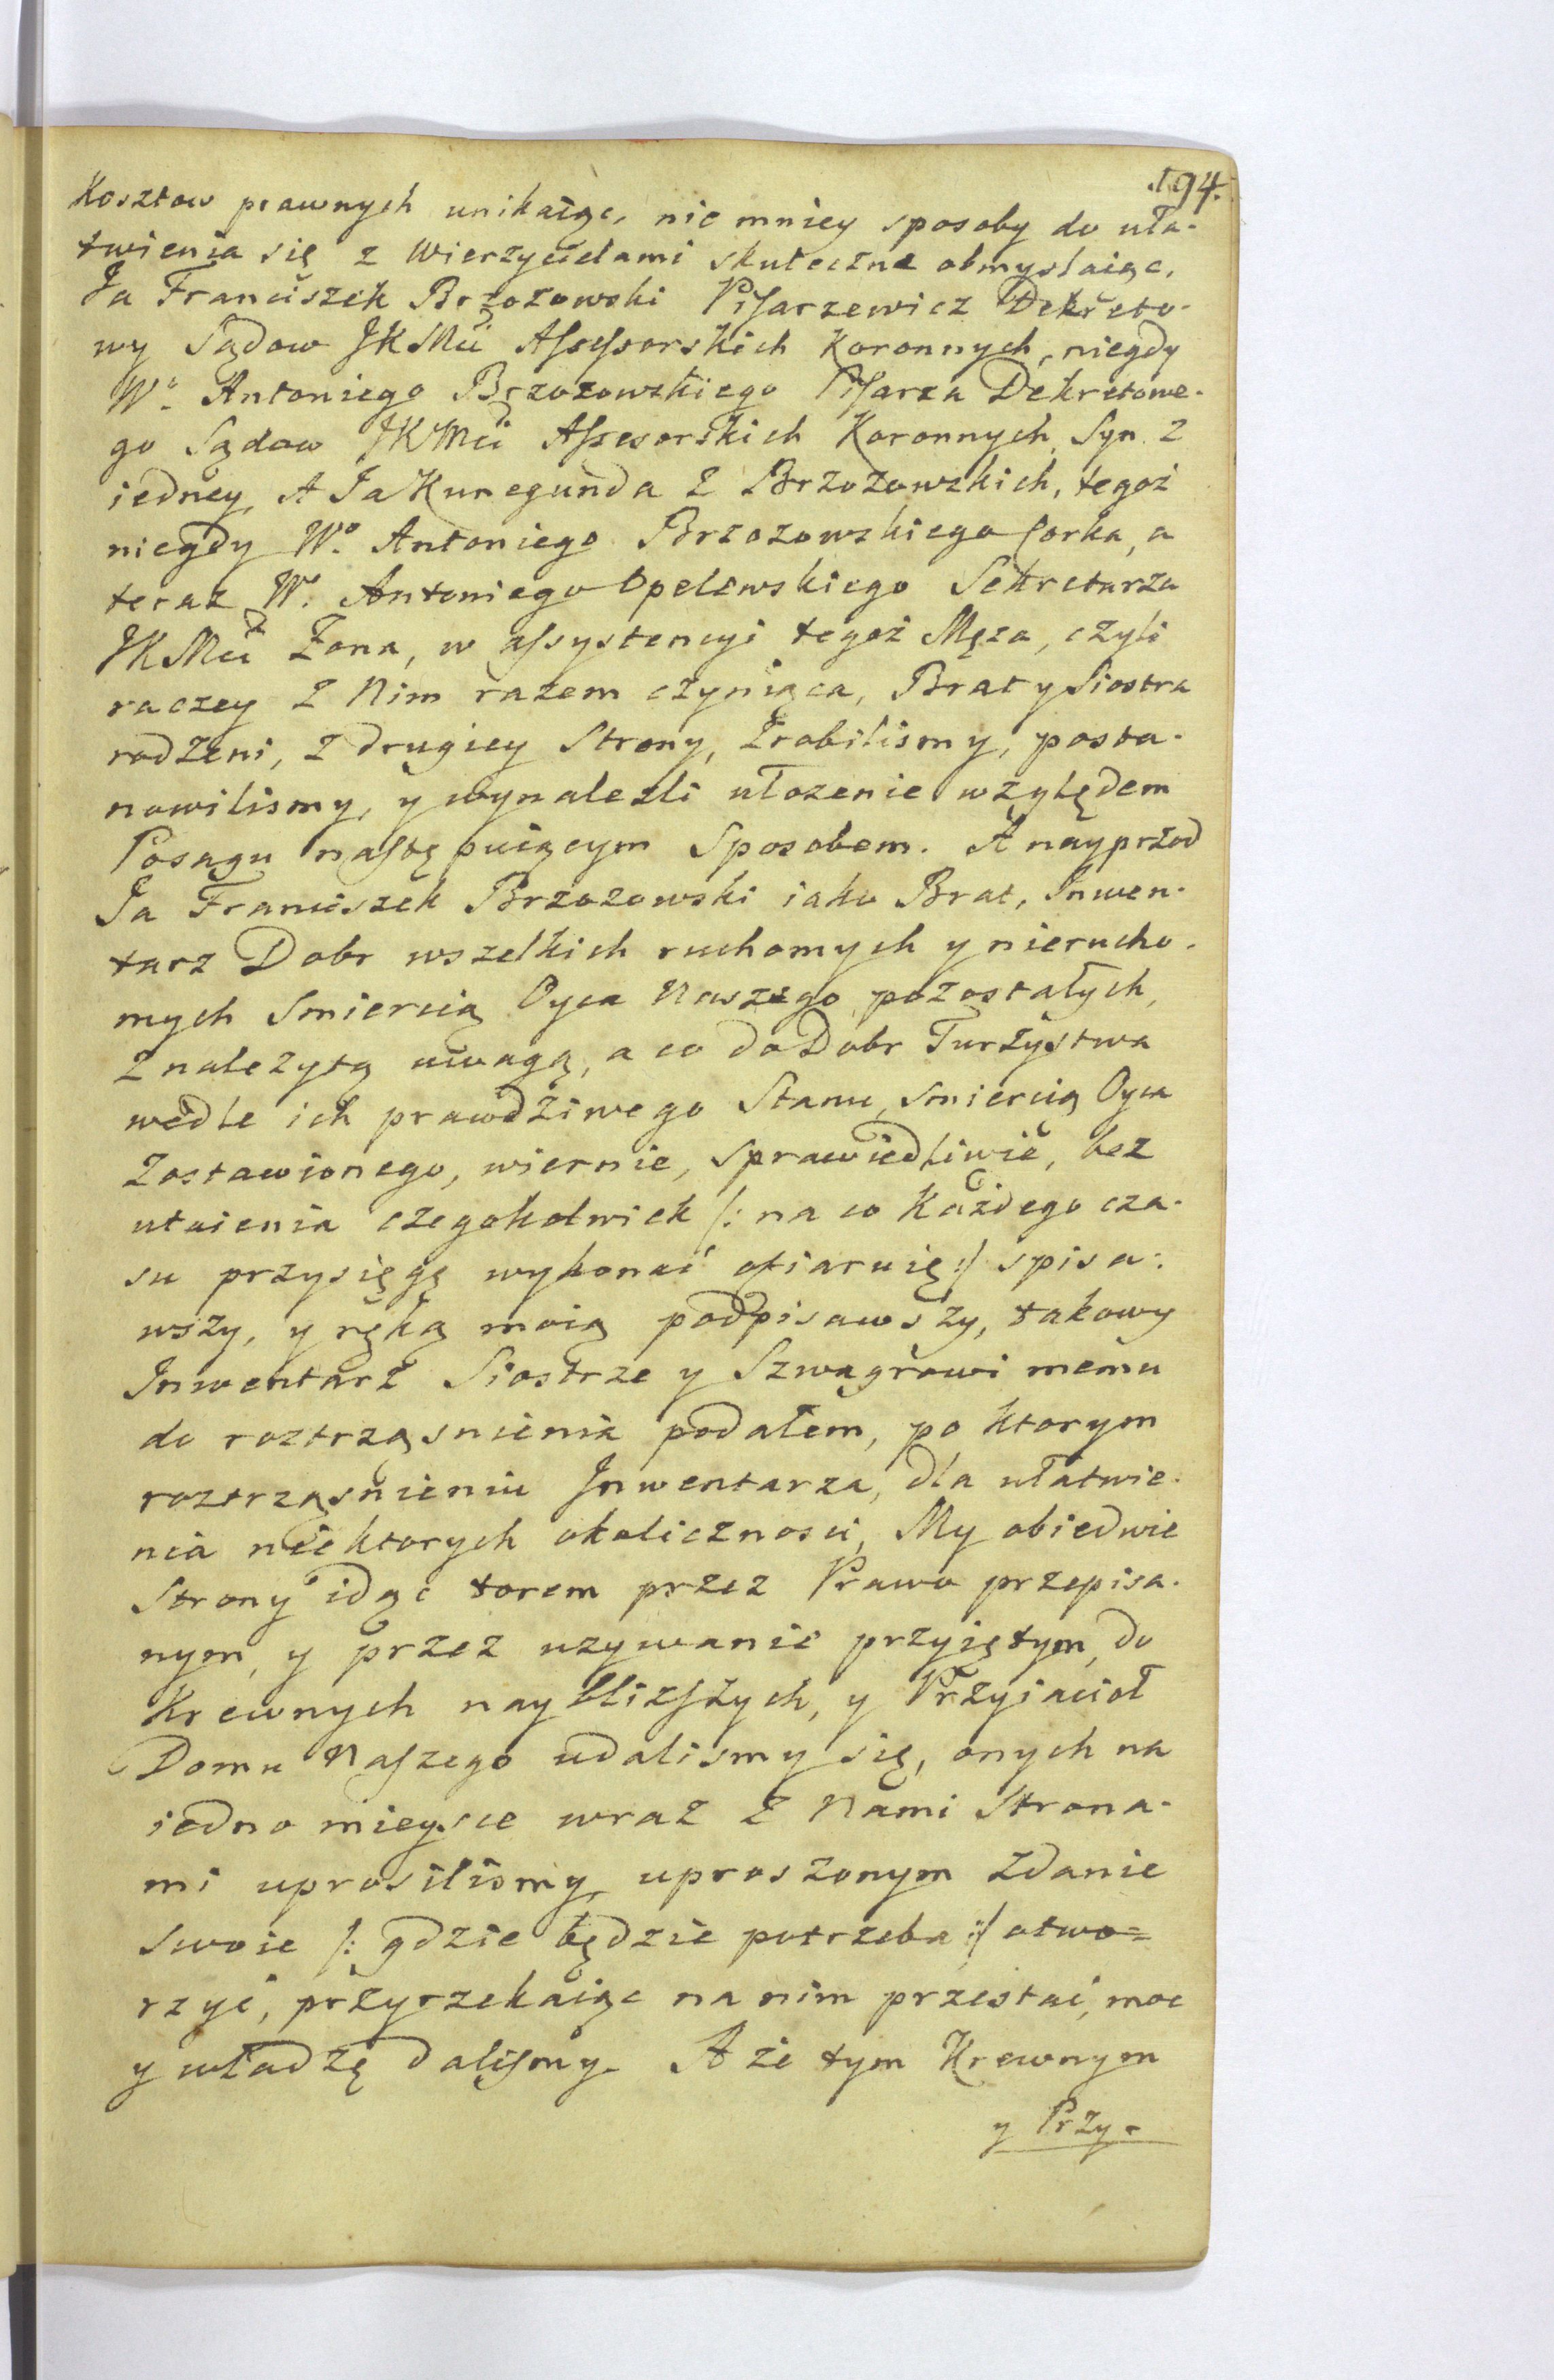 194.
Kosztow prawnych unikaiąc, nie mniey sposoby do uła-
twienia się z Wierzycielami skuteczne obmyslaiąc,
Ja Franciszek Brzozowski Piſarzewicz Dekreto-
wy Sądow JKMci Aſseſsorskich Koronnych, niegdy
Wo. Antoniego Brzozowskiego Piſarza Dekretowe-
go Sądow JKMci Aſsesorskich Koronnych Syn z
iedney, A Ja Kunegunda z Brzozowskich, tegoż
niegdy Wo. Antoniego Brzozowskiego Corka, a
teraz Wo. Antoniego Opelewskiego Sekretarza
JKMci Zona, w aſsystencyi tegoż Męża, czyli
raczey z Nim razem czyniąca, Brat y Siostra
rodzeni, z drugiey Strony, Zrobilismy, posta-
nowilismy, y wynalezli ułozenie względem
Posagu naſtępuiącym Sposobem. A nayprzod
Ja Franciszek Brzozowski iako Brat, Inwen-
tarz Dobr wszelkich ruchomych y nierucho-
mych Smiercią Oyca Naszego pozostałych,
z nalezytą uwagą, a co do Dobr Turzystwa
wedle ich prawdziwego Stanu, Smiercią Oyca
Zostawionego, wiernie, sprawiedliwie, bez
utaienia czegokolwiek /: na co Każdego cza-
su przysięgę wykonać ofiaruię :/ spisa-
wszy, y ręką moią podpisawszy, takowy
Inwentarz Siostrze y Szwagrowi memu
do roztrząsnienia podałem, po ktorym
roztrząsnieniu Inwentarza, dla ułatwie-
nia niektorych okolicznosci, My obiedwie
Strony idąc torem przez Prawo przepisa-
nym, y przez uzywanie przyiętym, do
Krewnych naybliżſzych, y Przyiacioł
Domu Naſzego udalismy się, onych na
iedno mieysce wraz z Nami Strona-
mi uprosilismy, uproszonym Zdanie
swoie /: gdzie będzie potrzeba :/ otwo=
rzyć, przyrzekaiąc na nim przestać, moc
y władzę daliſmy. A że tym Krewnym
y Przy-